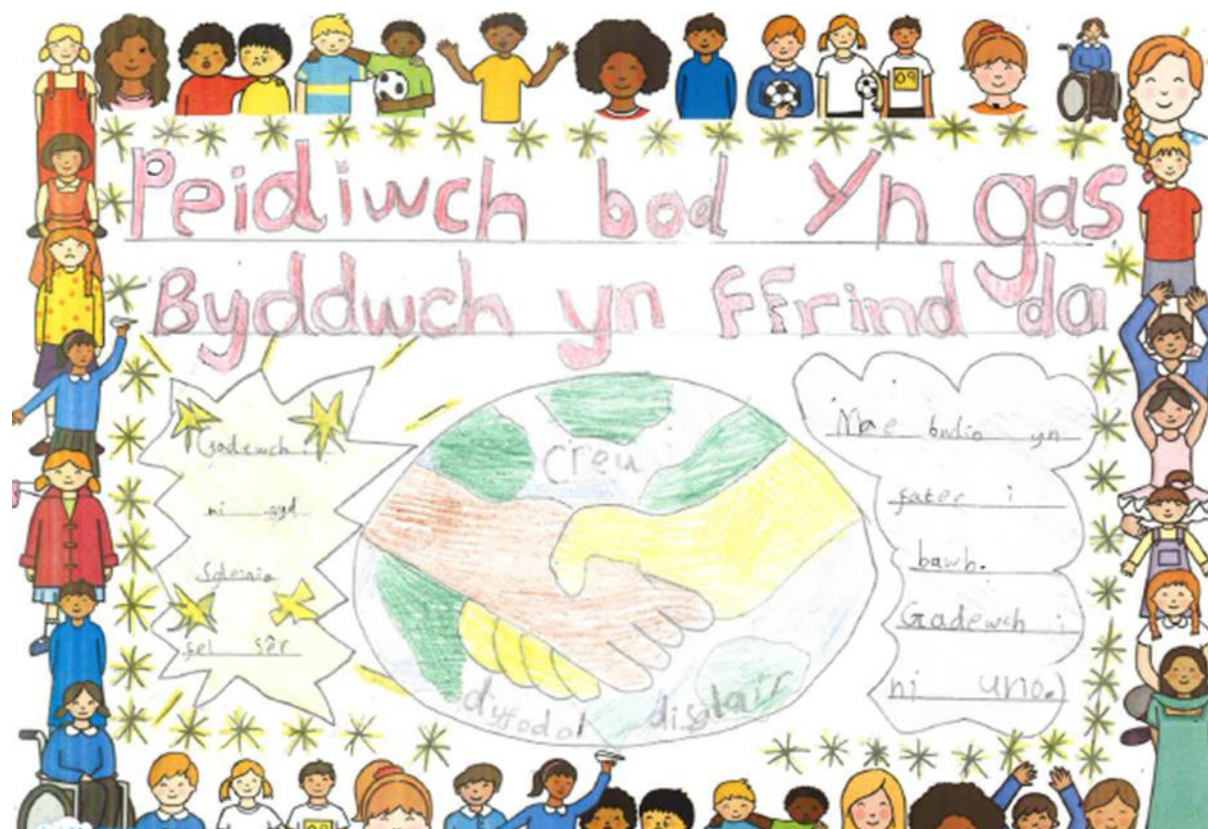 Peidiwch bod Yn gas
Byddwch yn ffrind da
Gadewch i
ni gyd
Sgleinio
fel sêr
Creu
dyfodol disglair
Mae bwlio yn
fater i
bawb.
Gadewch i
ni uno.
09